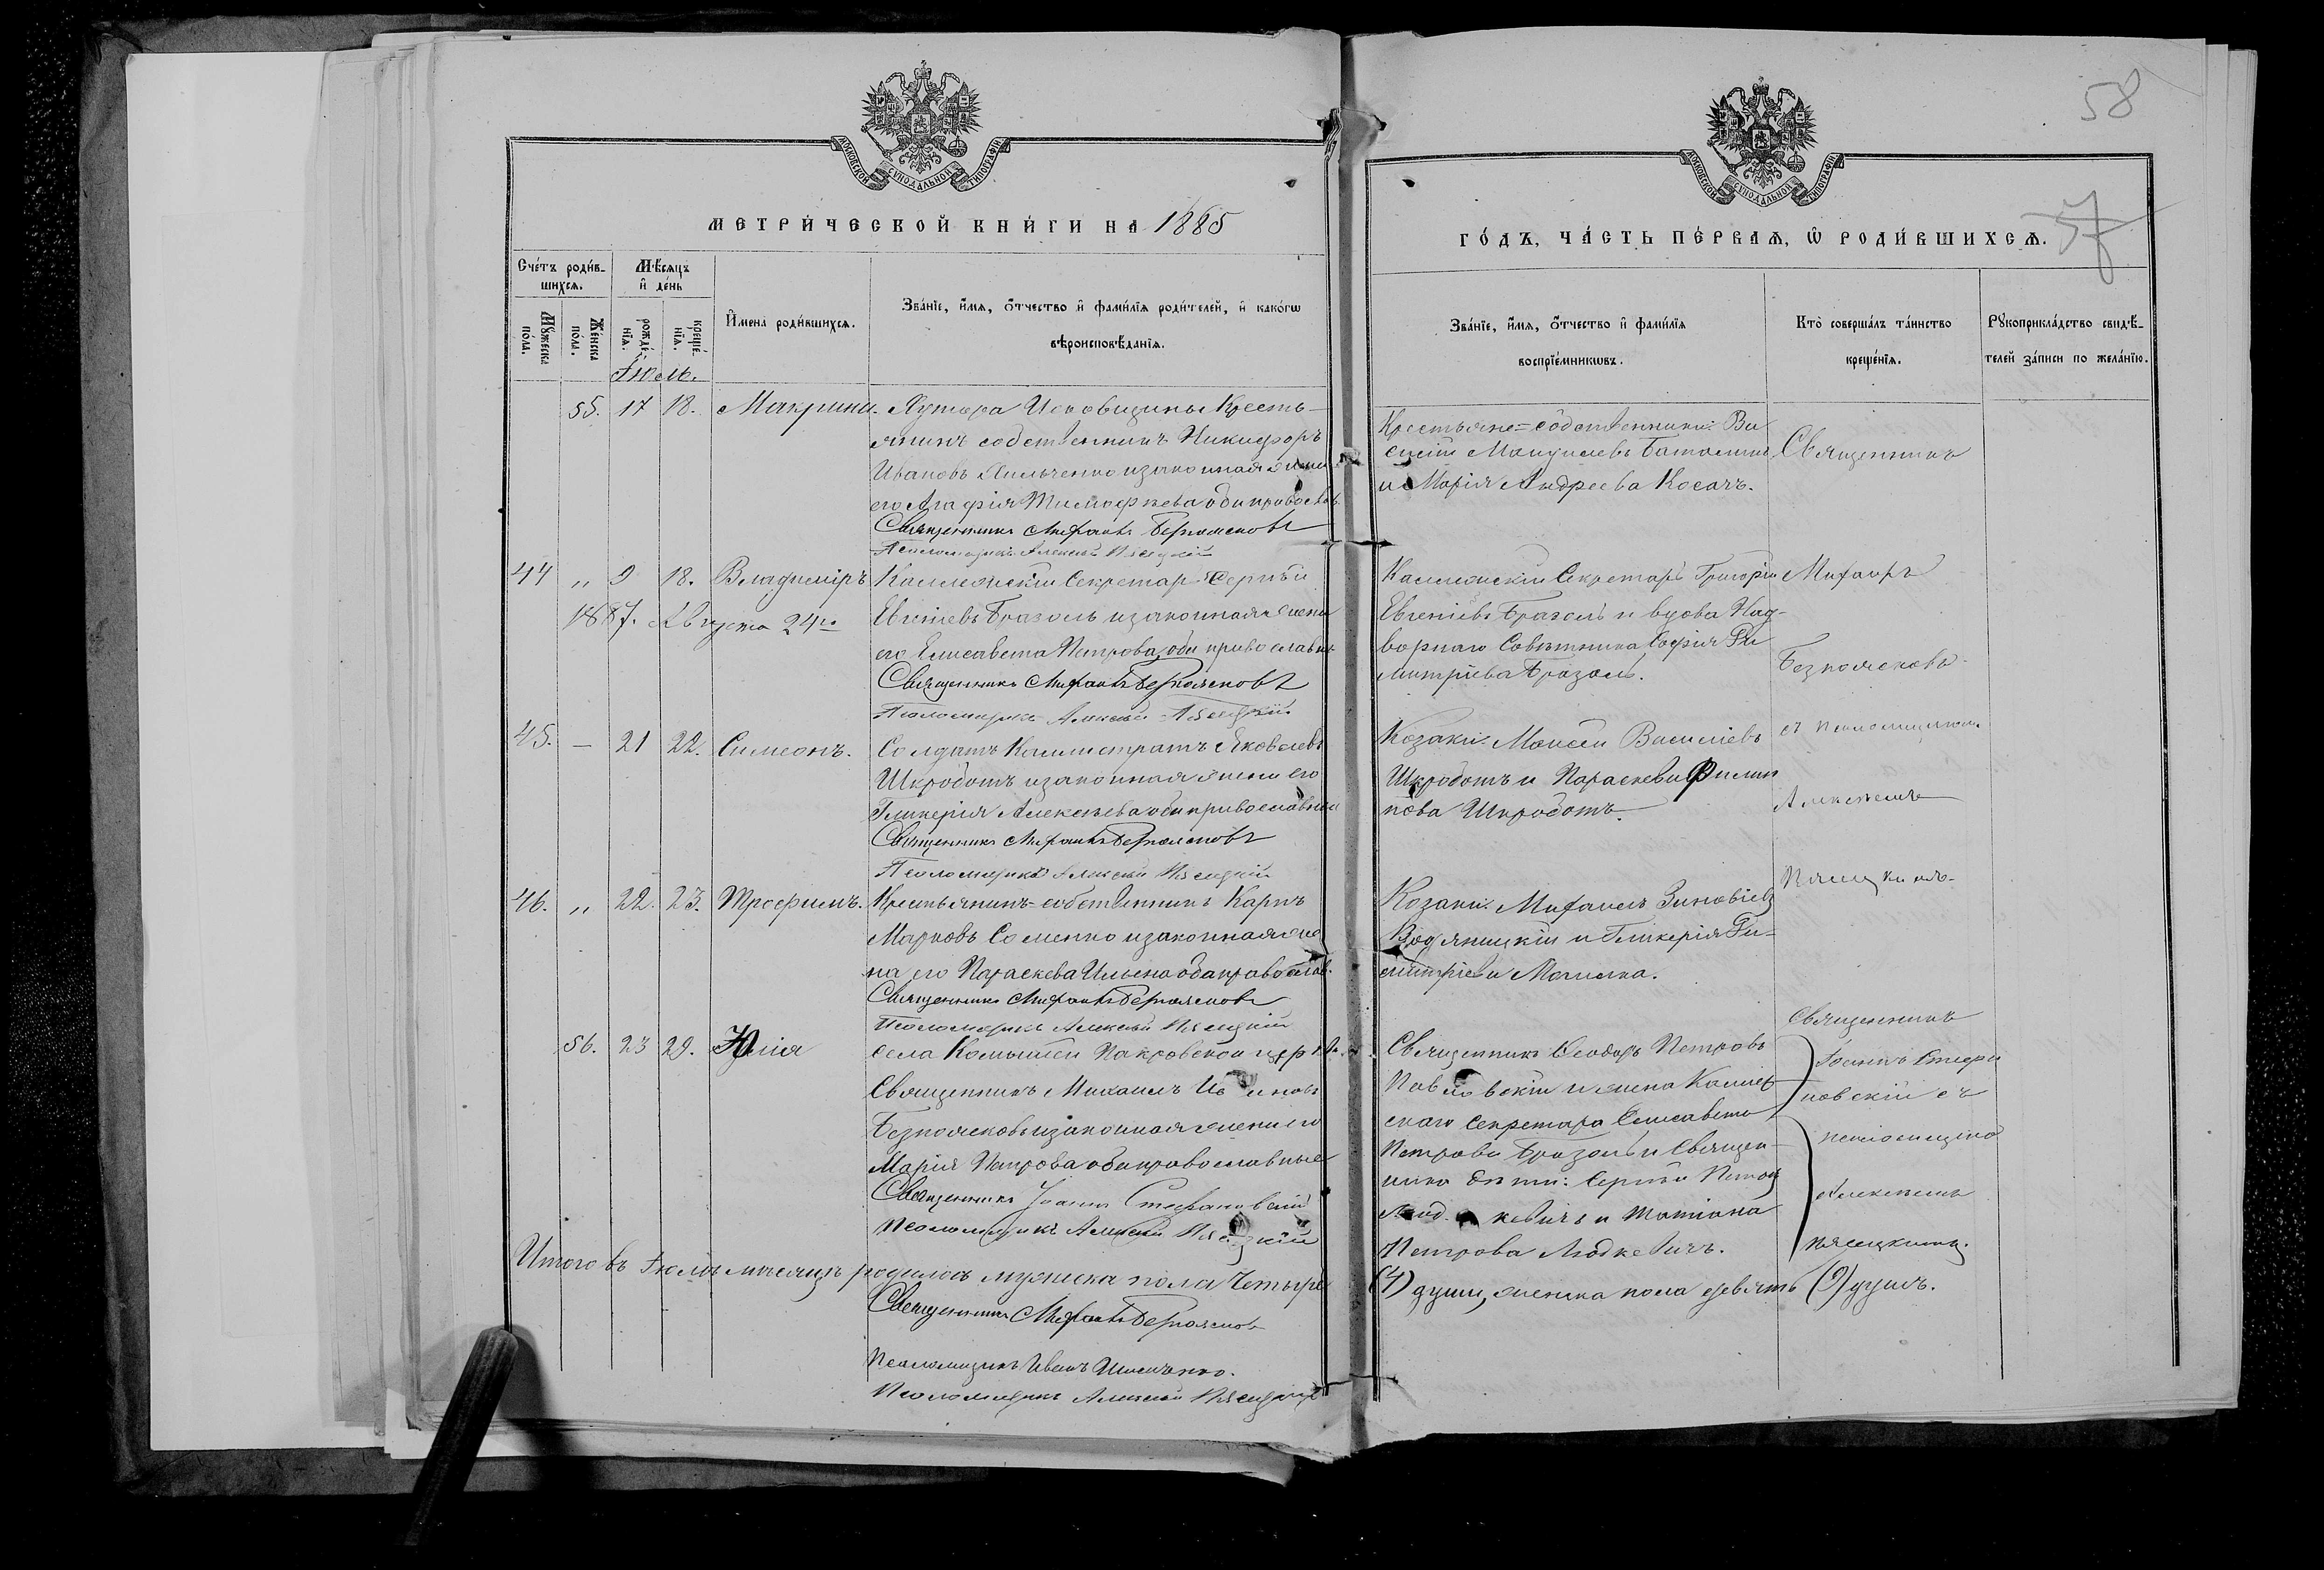 58
57
МОСКОВСКОЙ СѴНОДАЛЬНОЙ ТИПОГРАФІИ
МОСКОВСКОЙ СѴНОДАЛЬНОЙ ТИПОГРАФІИ
МЕТРИ́ЧЕСКОЙ КНИ́ГИ НА 1885
ГО́ДЪ, ЧА́СТЬ ПЕ́РВАѦ, Ѽ РОДИ́ВШИХСѦ.
Сче́тъ роди́в-
шихсѧ.
Мѣ́сѧцъ
и҆ де́нь
Мꙋ́жеска
по́ла.
Же́нска
по́ла.
рожде́-
нїѧ.
креще́-
нїѧ.
И҆мена̀ роди́вшихсѧ.
Зва́нїе, и҆́мѧ, ѻ҆́тчество и҆ фами́лїѧ роди́телей, и҆ како́гѡ
вѣроисповѣ́данїѧ.
Зва́нїе, и҆́мѧ, ѻ҆́тчество и҆ фами́лїѧ
воспрїе́мникѡвъ.
Кто̀ соверша́лъ та́инство
креще́нїѧ.
Рꙋкоприкла́дство свидѣ́-
телей за́писи по жела́нїю.
Іюль.
55. 17 18. Макрина. Хутора Исковщины Кресть-
янинъ собственникъ Никифоръ
Ивановъ Хильченко и законная жена
его Агафія Тимофеева оба православ.
Священникъ Михаилъ Безпоясковъ
Псаломщикъ Алексѣй Пясецкій
Крестьяне=собственники: Ва
силій
и Марія Андреева Косачъ.
Священникъ
44 „ 9 18. Владиміръ Коллежскій Секретарь Сергѣй
1887. Августа 24го Евгеніевъ Бразоль и законная жена
его Елисавета Петрова, оба православн.
Священникъ Михаилъ Безпоясковъ
Псаломщикъ Алексѣй Пясецкій
Коллежскій Секретарь Григорій
Евгеніевъ Бразоль и вдова Над-
ворнаго Совѣтника Софія Ди
митріева Бразоль.
Михаилъ
Безпоясковъ
45. — 21 22. Симеонъ. Солдатъ Каллистратъ Яковлевъ
Шкроботъ и законная жена его
Гликерія Алексѣева оба православные
Священникъ Михаилъ Безпоясковъ
Псаломщикъ Алексѣй Пясецкій
Козаки: Моисей Василіевъ
Шкроботъ и Параскева Филип
пова Шкроботъ.
съ псаломщикомъ
Алексѣемъ
46. „ 22. 23. Трофимъ. Крестьянинъ=собственникъ Карпъ
Марковъ Соменко и законная же
на его Параскева Ильина оба православ.
Священникъ Михаилъ Безпоясковъ
Псаломщикъ Алексѣй Пясецкій
Козаки: Михаилъ Зиновіевъ
Водяницкій и Гликерія Ди-
митріева
Пясецкимъ.
56. 23 29. Юлія Села Комышей Покровской церкви
Священникъ Михаилъ
Безпоясковъ и законная жена его
Марія Петрова оба православные
Священникъ Іоаннъ Стефановскій
Псаломщикъ Алексѣй Пясецкій
Священникъ Ѳеодоръ Петровъ
Павловскій и жена Коллеж
скаго Секретаря Елисавета
Петрова Бразоль и Священ
ника дѣти: Сергѣй Петровъ
Людкевичъ и Татіана
Петрова Людкевичъ.
Священникъ
Іоаннъ Стефа
новскій съ
псаломщикомъ
Алексѣемъ
Пясецкимъ.
Итого въ Іюлѣ мѣсяцѣ родилось мужеска пола четыре
(4) души, женска пола девять (9) душъ.
Священникъ Михаилъ Безпоясковъ
Псаломщикъ Иванъ
Псаломщикъ Алексѣй Пясецкій